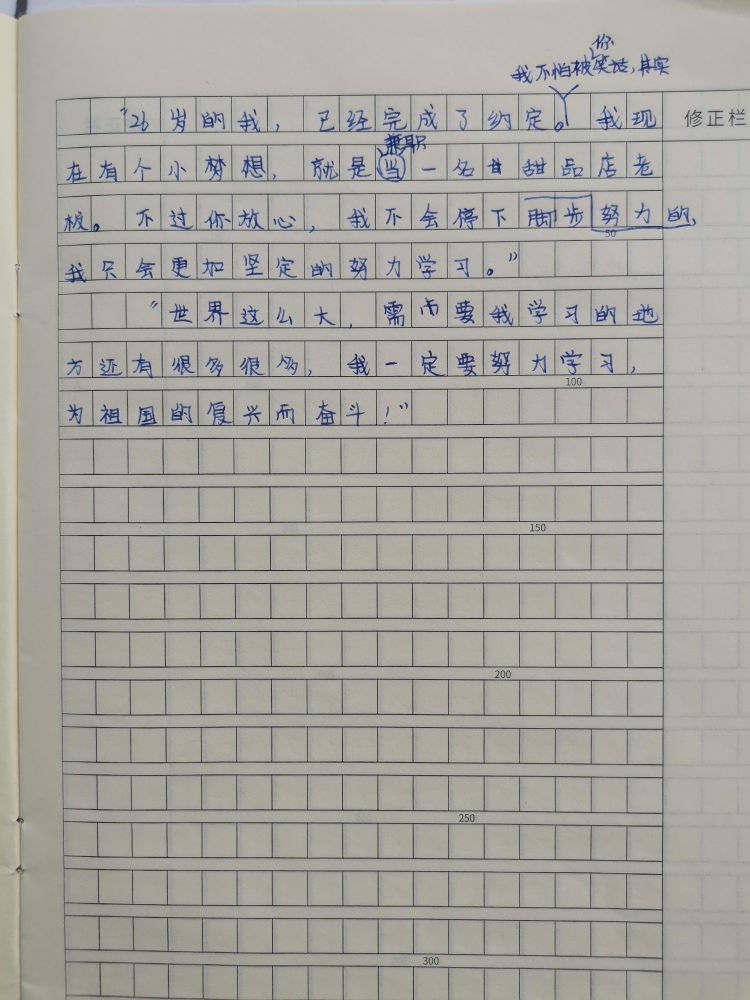 你
我不怕被笑话,其实
"26岁的我,已经完成了约定。我现
修正栏
兼职
在有个小梦想,就是当一名甘甜品店老
板。不过你放心,我不会停下脚步努力的,
50
我只会更加坚定的努力学习。"
"世界这么大,需要我学习的地
方还有很多很多,我一定要努力学习,
100
为祖国的复兴而奋斗!"
150
200
250
300